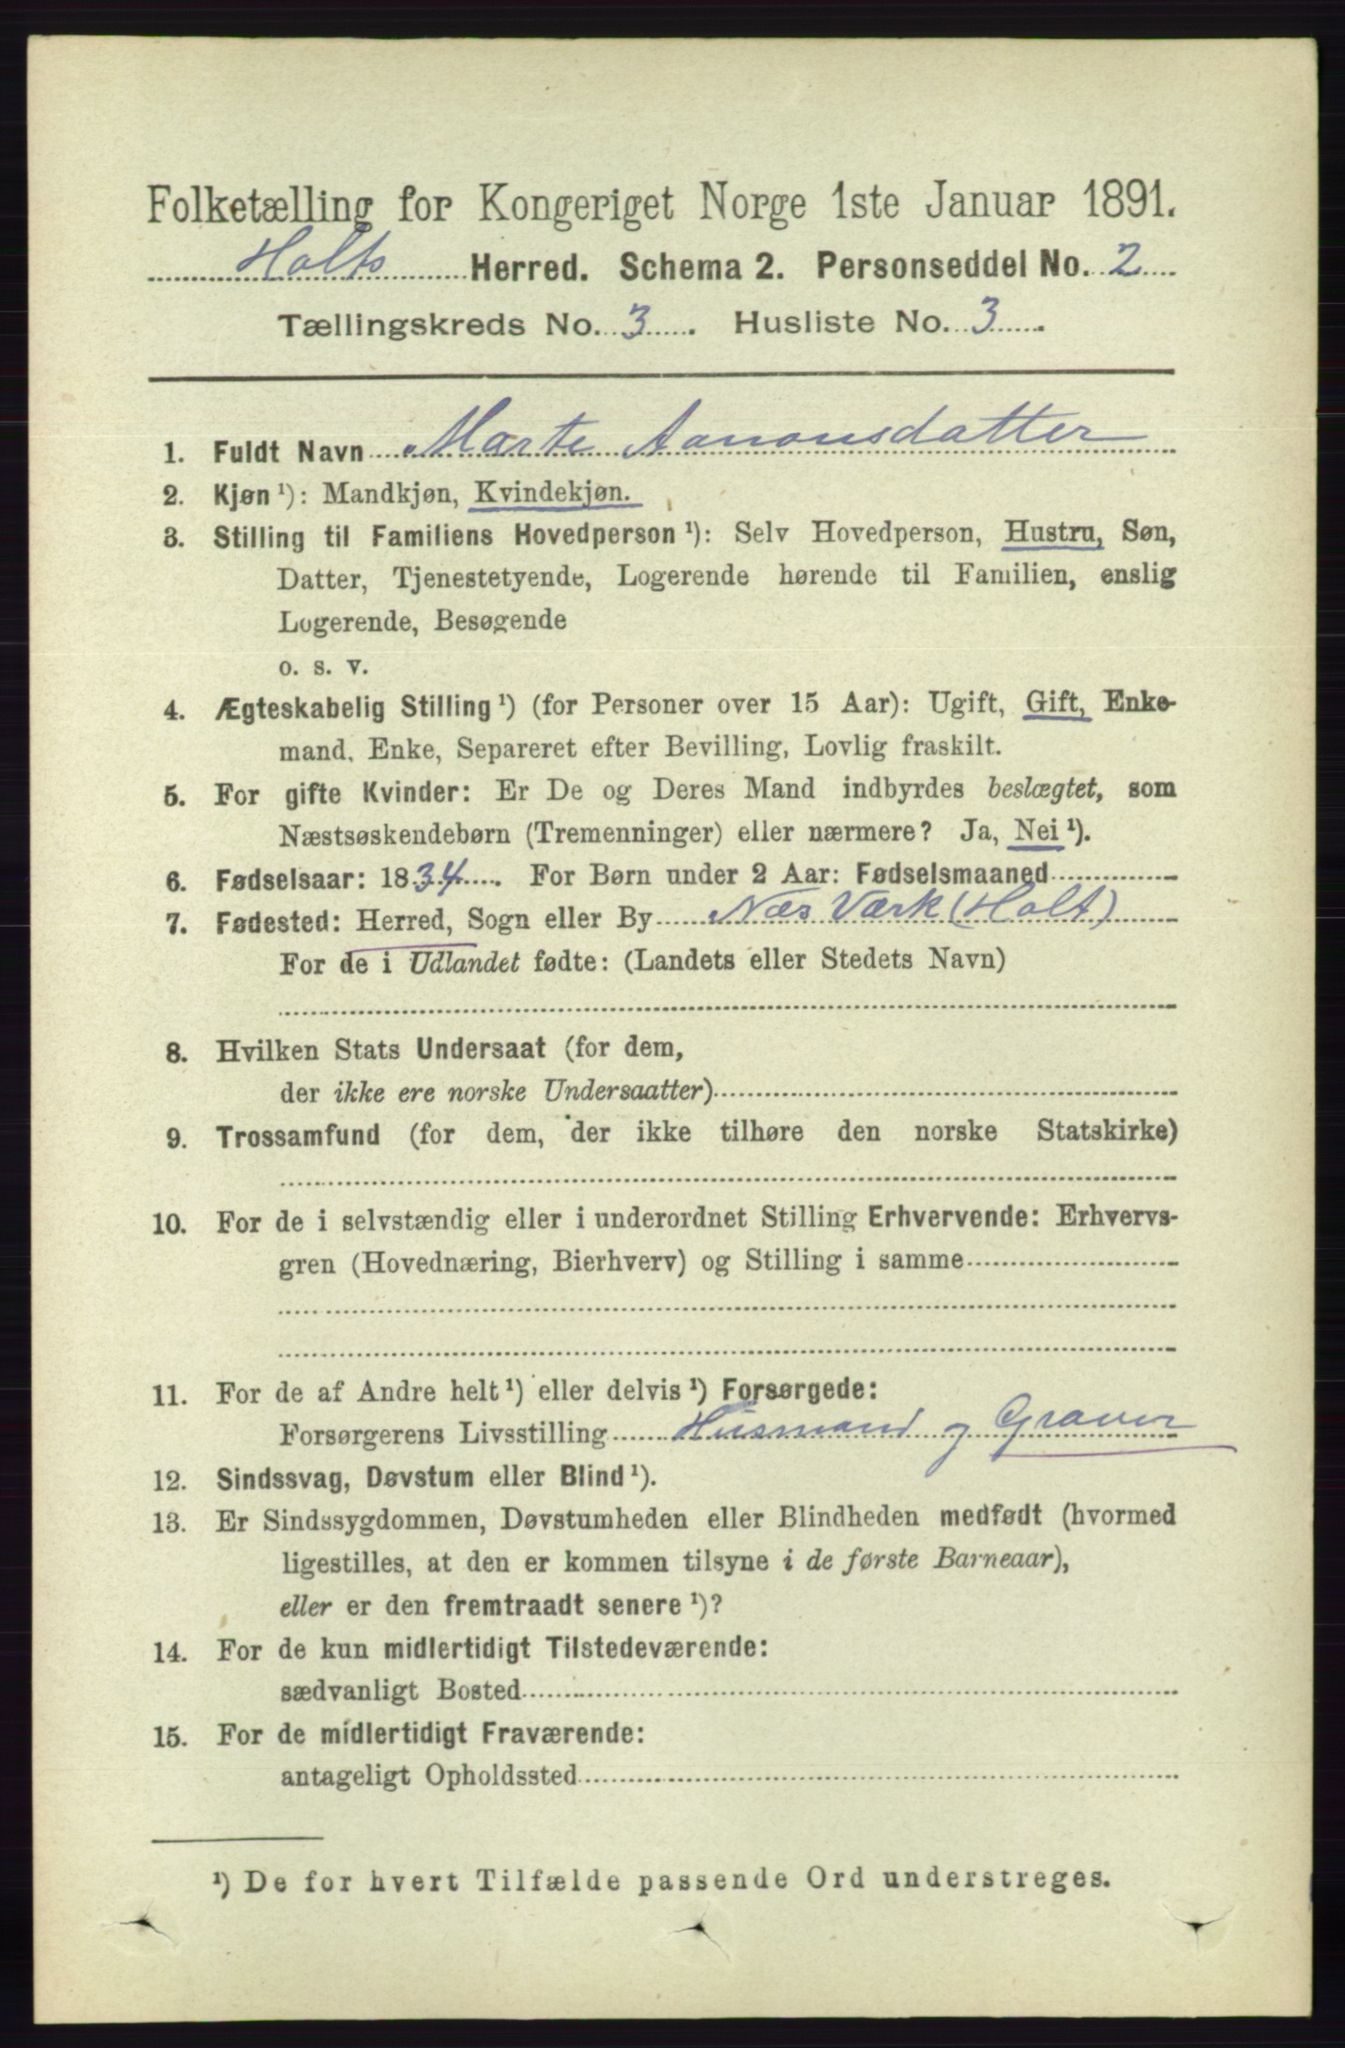 Folketælling for Kongeriget Norge 1ste Januar 1891.
Holts Herred. Schema 2. Personseddel No. 2
Tællingskreds No. 3. Husliste No. 3.
1. Fuldt Navn Marte Aanonsdatter
2. Kjøn ¹): Mandkjøn, Kvindekjøn.
3. Stilling til Familiens Hovedperson ¹): Selv Hovedperson, Hustru, Søn,
Datter, Tjenestetyende, Logerende hørende til Familien, enslig
Logerende, Besøgende
o. s. v.
4. Ægteskabelig Stilling ¹) (for Personer over 15 Aar): Ugift, Gift, Enke-
mand, Enke, Separeret efter Bevilling, Lovlig fraskilt.
5. For gifte Kvinder: Er De og Deres Mand indbyrdes beslægtet, som
Næstsøskendebørn (Tremenninger) eller nærmere? Ja, Nei ¹).
6. Fødselsaar: 1834. For Børn under 2 Aar: Fødselsmaaned
7. Fødested: Herred, Sogn eller By Næs Værk (Holt)
For de i Udlandet fødte: (Landets eller Stedets Navn)
8. Hvilken Stats Undersaat (for dem,
der ikke ere norske Undersaatter)
9. Trossamfund (for dem, der ikke tilhøre den norske Statskirke)
10. For de i selvstændig eller i underordnet Stilling Erhvervende: Erhvervs-
gren (Hovednæring, Bierhverv) og Stilling i samme
11. For de af Andre helt ¹) eller delvis ¹) Forsørgede:
Forsørgerens Livsstilling Husmand og Graver
12. Sindssvag, Døvstum eller Blind ¹).
13. Er Sindssygdommen, Døvstumheden eller Blindheden medfødt (hvormed
ligestilles, at den er kommen tilsyne i de første Barneaar),
eller er den fremtraadt senere ¹)?
14. For de kun midlertidigt Tilstedeværende:
sædvanligt Bosted
15. For de midlertidigt Fraværende:
antageligt Opholdssted
¹) De for hvert Tilfælde passende Ord understreges.